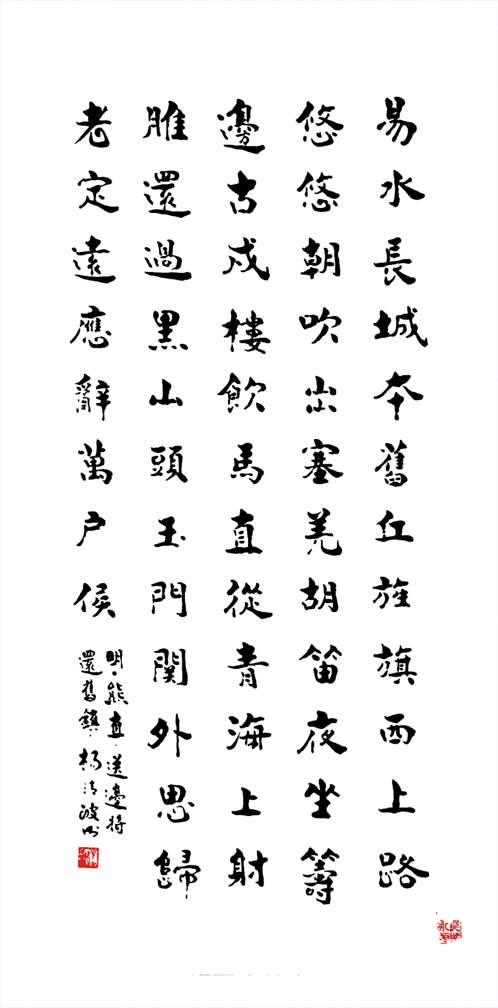 易水長城本舊丘旌旗西上路
悠悠朝吹出塞羌胡笛夜坐籌
邊古戍樓飲馬直從青海上射
雕還過黑山頭玉門関外思歸
老定遠應辭萬户侯
明·熊直·送邊將
還舊鎮·楊清波书